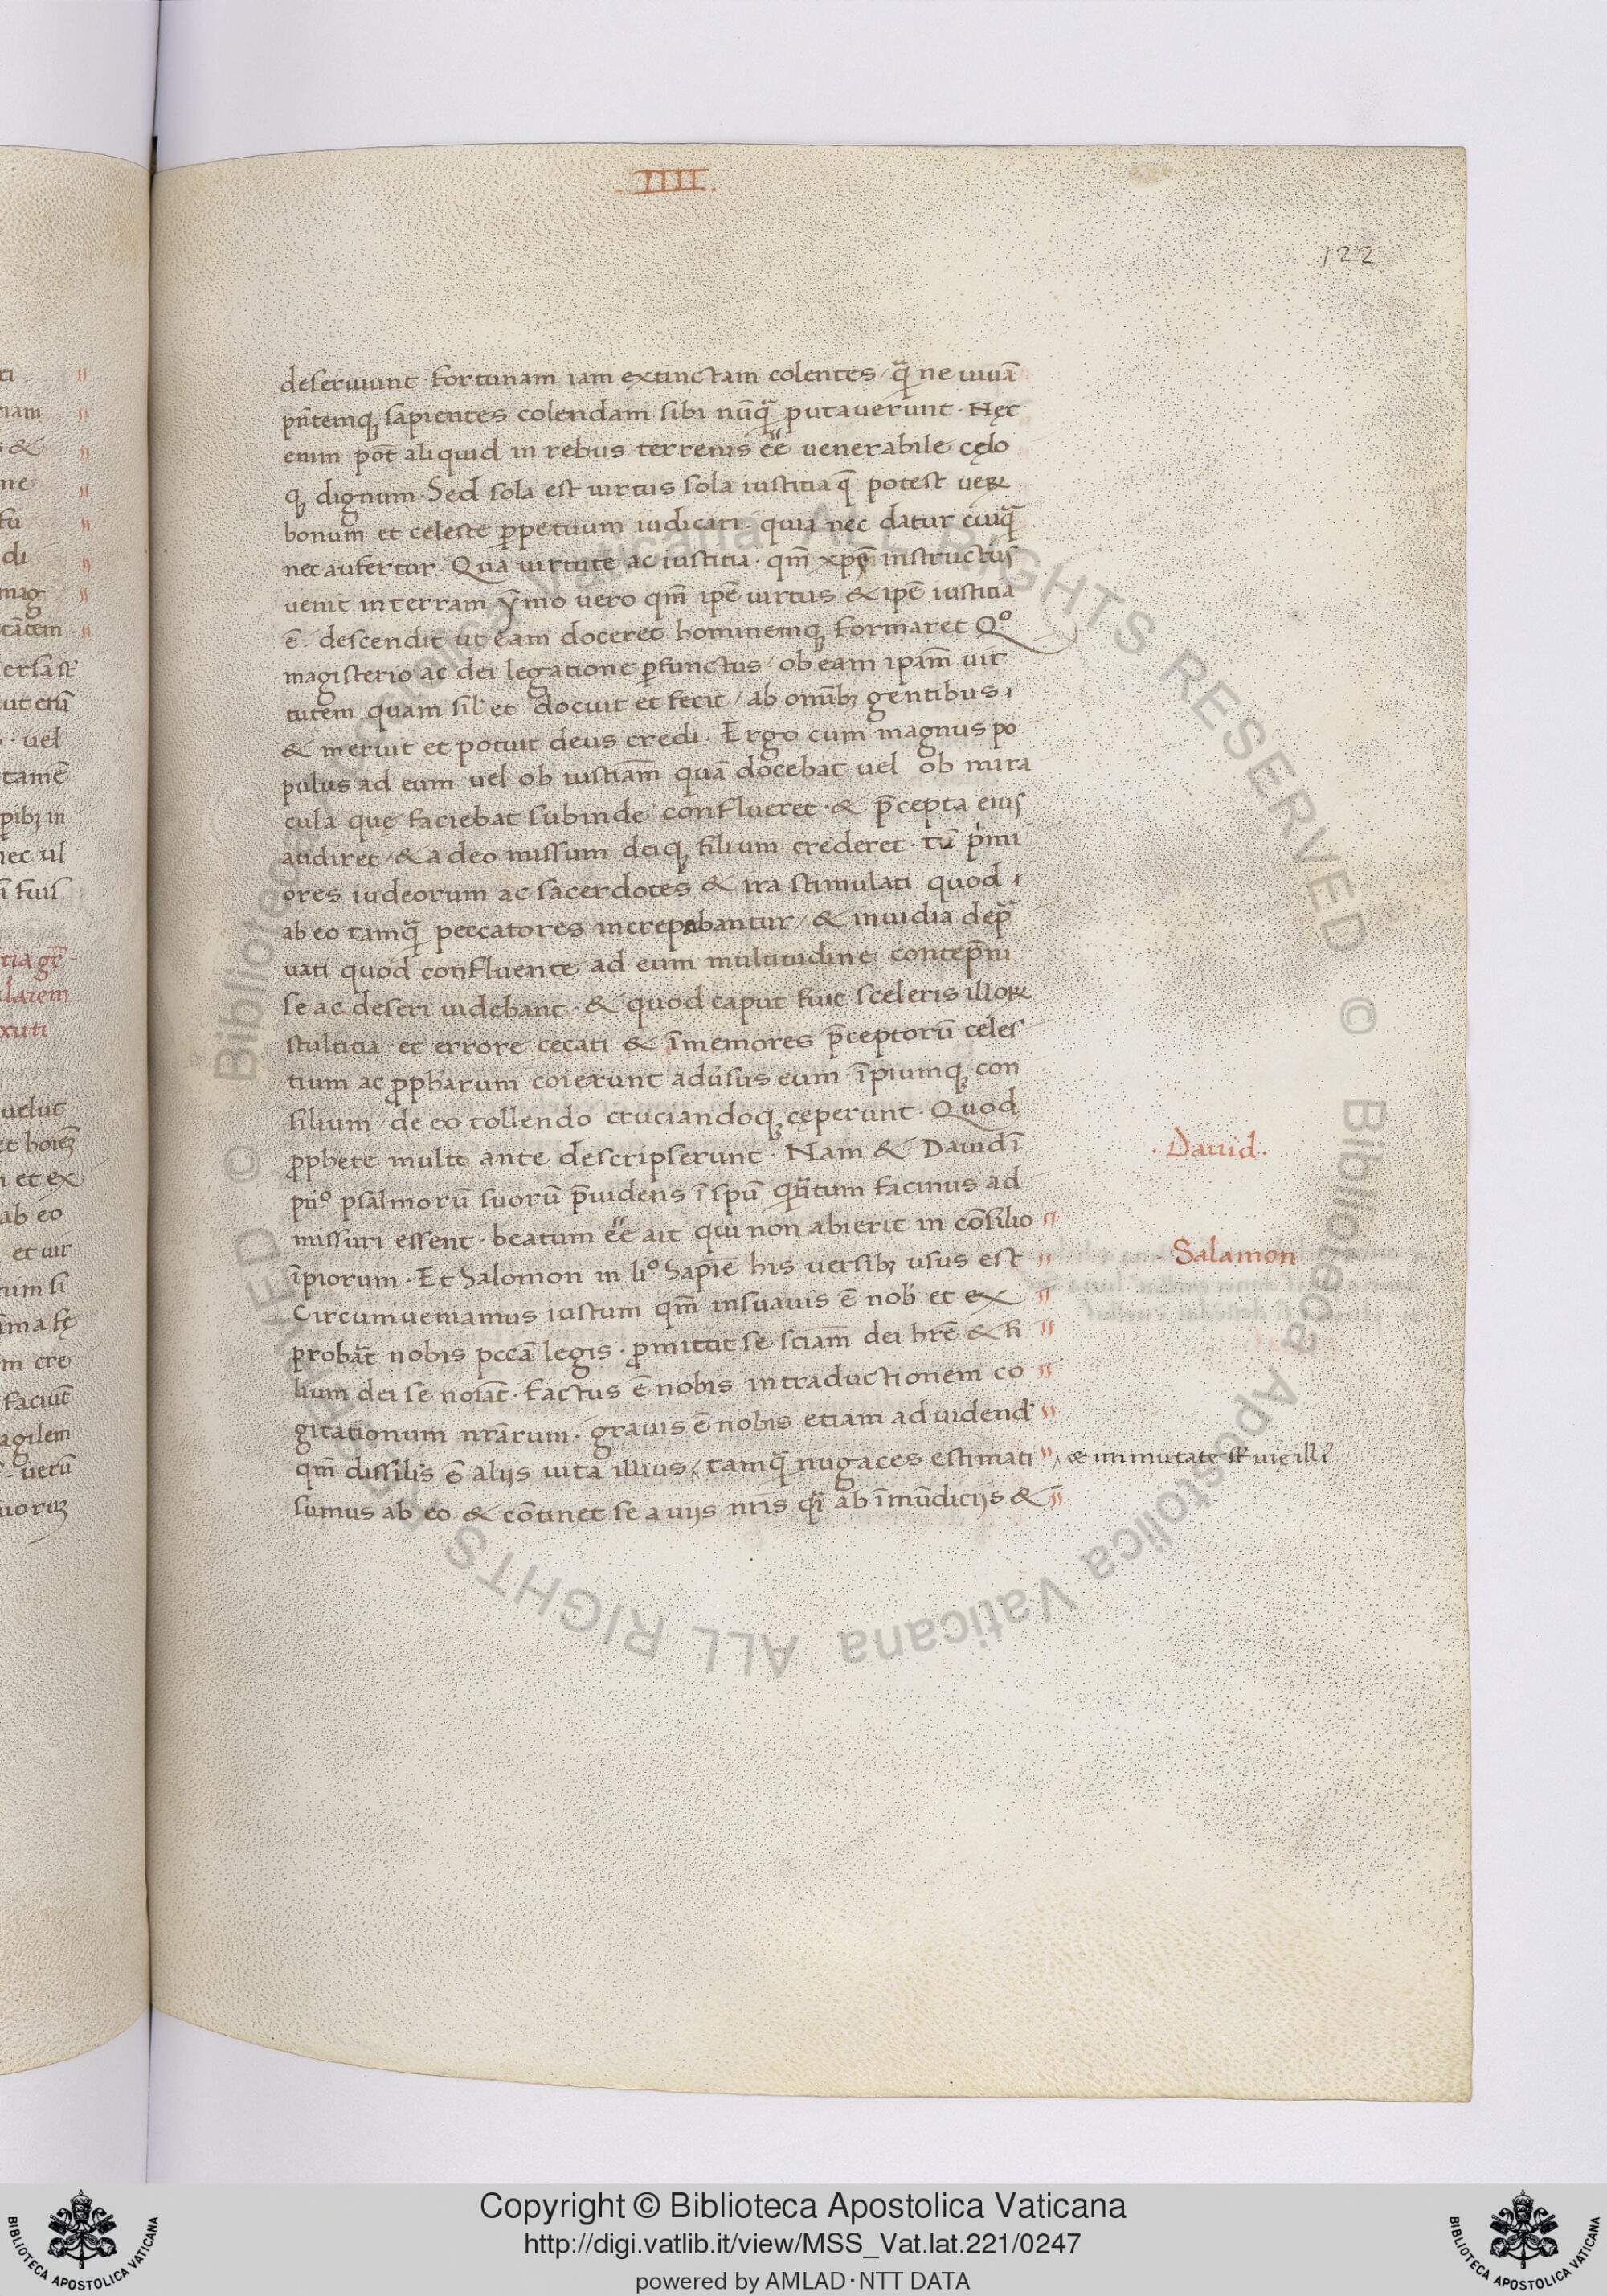 .IIII.
122
deserviunt · fortunam iam extinctam colentes / q̄ ne vivā
p̄ntemq; sapientes colendam sibi nūq̄ putaverunt · Nęc
enim pōt aliquid in rebus terrenis eē venerabile cęlo
q; dignum · Sed sola est virtus sola iustitia q̄ potest veꝝ
bonum et celeste ꝑpetuum iudicari · quia nec datur cuiq̄
nec aufertur · Qua virtute ac iustitia · qm̄ xp̄s instructus
venit in terram ẏmo vero qm̄ ip̄e virtus & ip̄e iustitia
ē · descendit ut eam doceret hominemq; formaret Qº
magisterio ac dei legatione ꝑfunctus / ob eam ip̄am vir
tutem quam sil̄ et docuit et fecit / ab omīb; gentibus
& meruit et potuit deus credi · Ergo cum magnus po
pulus ad eum vel ob iustiam̄ quā docebat vel ob mira
cula que faciebat subinde conflueret · & p̄cepta eius
audiret / & a deo missum deiq; filium crederet · tū pͥmi
ores iudeorum ac sacerdotes & ira stimulati quod
ab eo tamq̄ peccatores increpabantur / & invidia dep̄
vati quod confluente ad eum multitudine contep̄ni
se ac deseri videbant · & quod caput fuit sceleris illoꝝ
stultitia et errore cecati & īmemores p̄ceptorū celes
tium ac ꝓph̄arum coierunt adv̄sus eum · īpiumq; con
silium / de eo tollendo cruciandoq; cęperunt · Quod
ꝓphete multi ante descripserunt · Nam & David ī
p̄nº psalmorū suorū p̄videns ī spū q̄ntum facinus ad
missuri essent · beatum eē ait qui non abierit in cōsilio
īpiorum · Et Salomon in liº Sapīe his versib; usus est
Circumveniamus iustum qm̄ insuavis ē nob̄ et ex
probāt nobis pccā legis · ꝓmittit se sciam̄ dei hr̄e & fi
lium dei se noīat · factus ē nobis in traductionem co
gitationum nr̄arum · gravis ē nobis etiam ad videnđ
qm̄ dissilis ē aliis vita illius / tamq̄ nugaces estimati
sumus ab eo & cōtinet se a viis nr̄is q̄i ab īmūdiciis &
· David ·
· Salamon
& immutate st̄ vię illi᾽
Copyright © Biblioteca Apostolica Vaticana
http://digi.vatlib.it/view/MSS_Vat.lat.221/0247
powered by AMLAD·NTT DATA